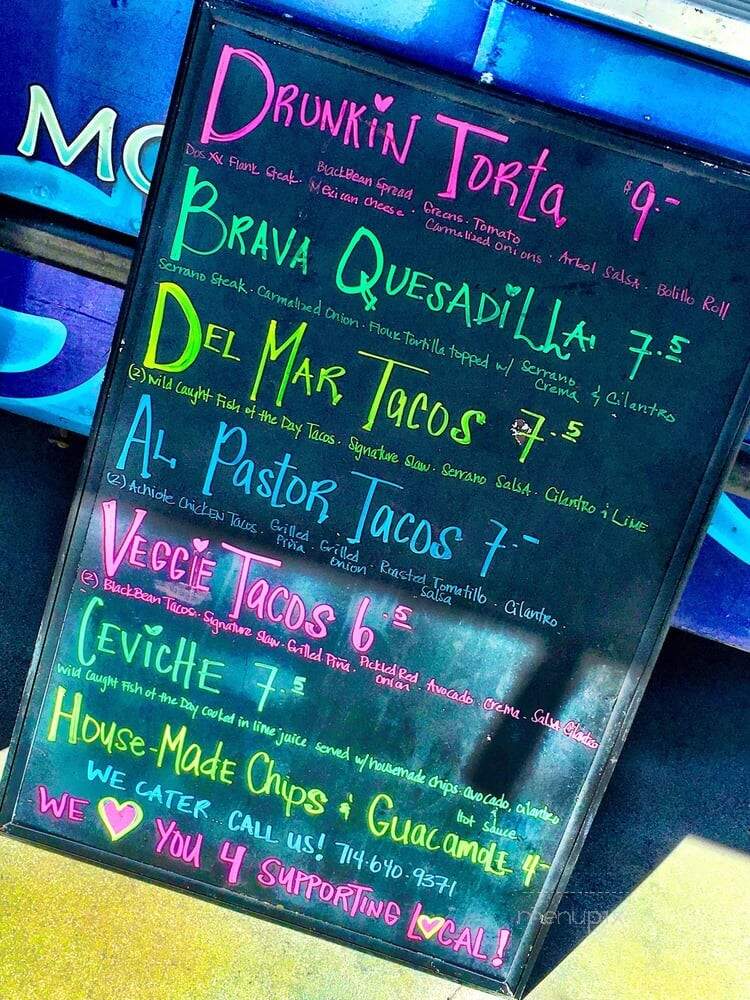 MO
DRUNKIN TORTA $9.-
Dos XX Flank Steak. BlackBean Spread Mexican Cheese. Greens. Tomato Carmalized Onions. Arbol Salsa. Bolillo Roll
BRAVA QUESADILLA! 7.5
Serrano Steak. Carmalized Onion. Flour Tortilla topped w/ Serrano Crema & Cilantro
DEL MAR TACOS 7.5
(2) Wild Caught Fish of the Day Tacos. Signature Slaw. Serrano Salsa. Cilantro & Lime
AL PASTOR TACOS 7-
(2) Achiote Chicken Tacos. Grilled Piña. Grilled Onion. Roasted Tomatillo Salsa. Cilantro.
VEGGIE TACOS 6.5
(2) BlackBean Tacos. Signature Slaw. Grilled Piña. Pickled Red Onion. Avocado Crema. Salsa Cilantro
CEVICHE 7.5
Wild Caught Fish of the Day cooked in lime juice served w/ housemade chips. avocado, cilantro & hot sauce
HOUSE-MADE CHIPS & GUACAMOLE 4-
WE CATER.. CALL US! 714.640.9371
WE YOU 4 SUPPORTING LOCAL!
menupix